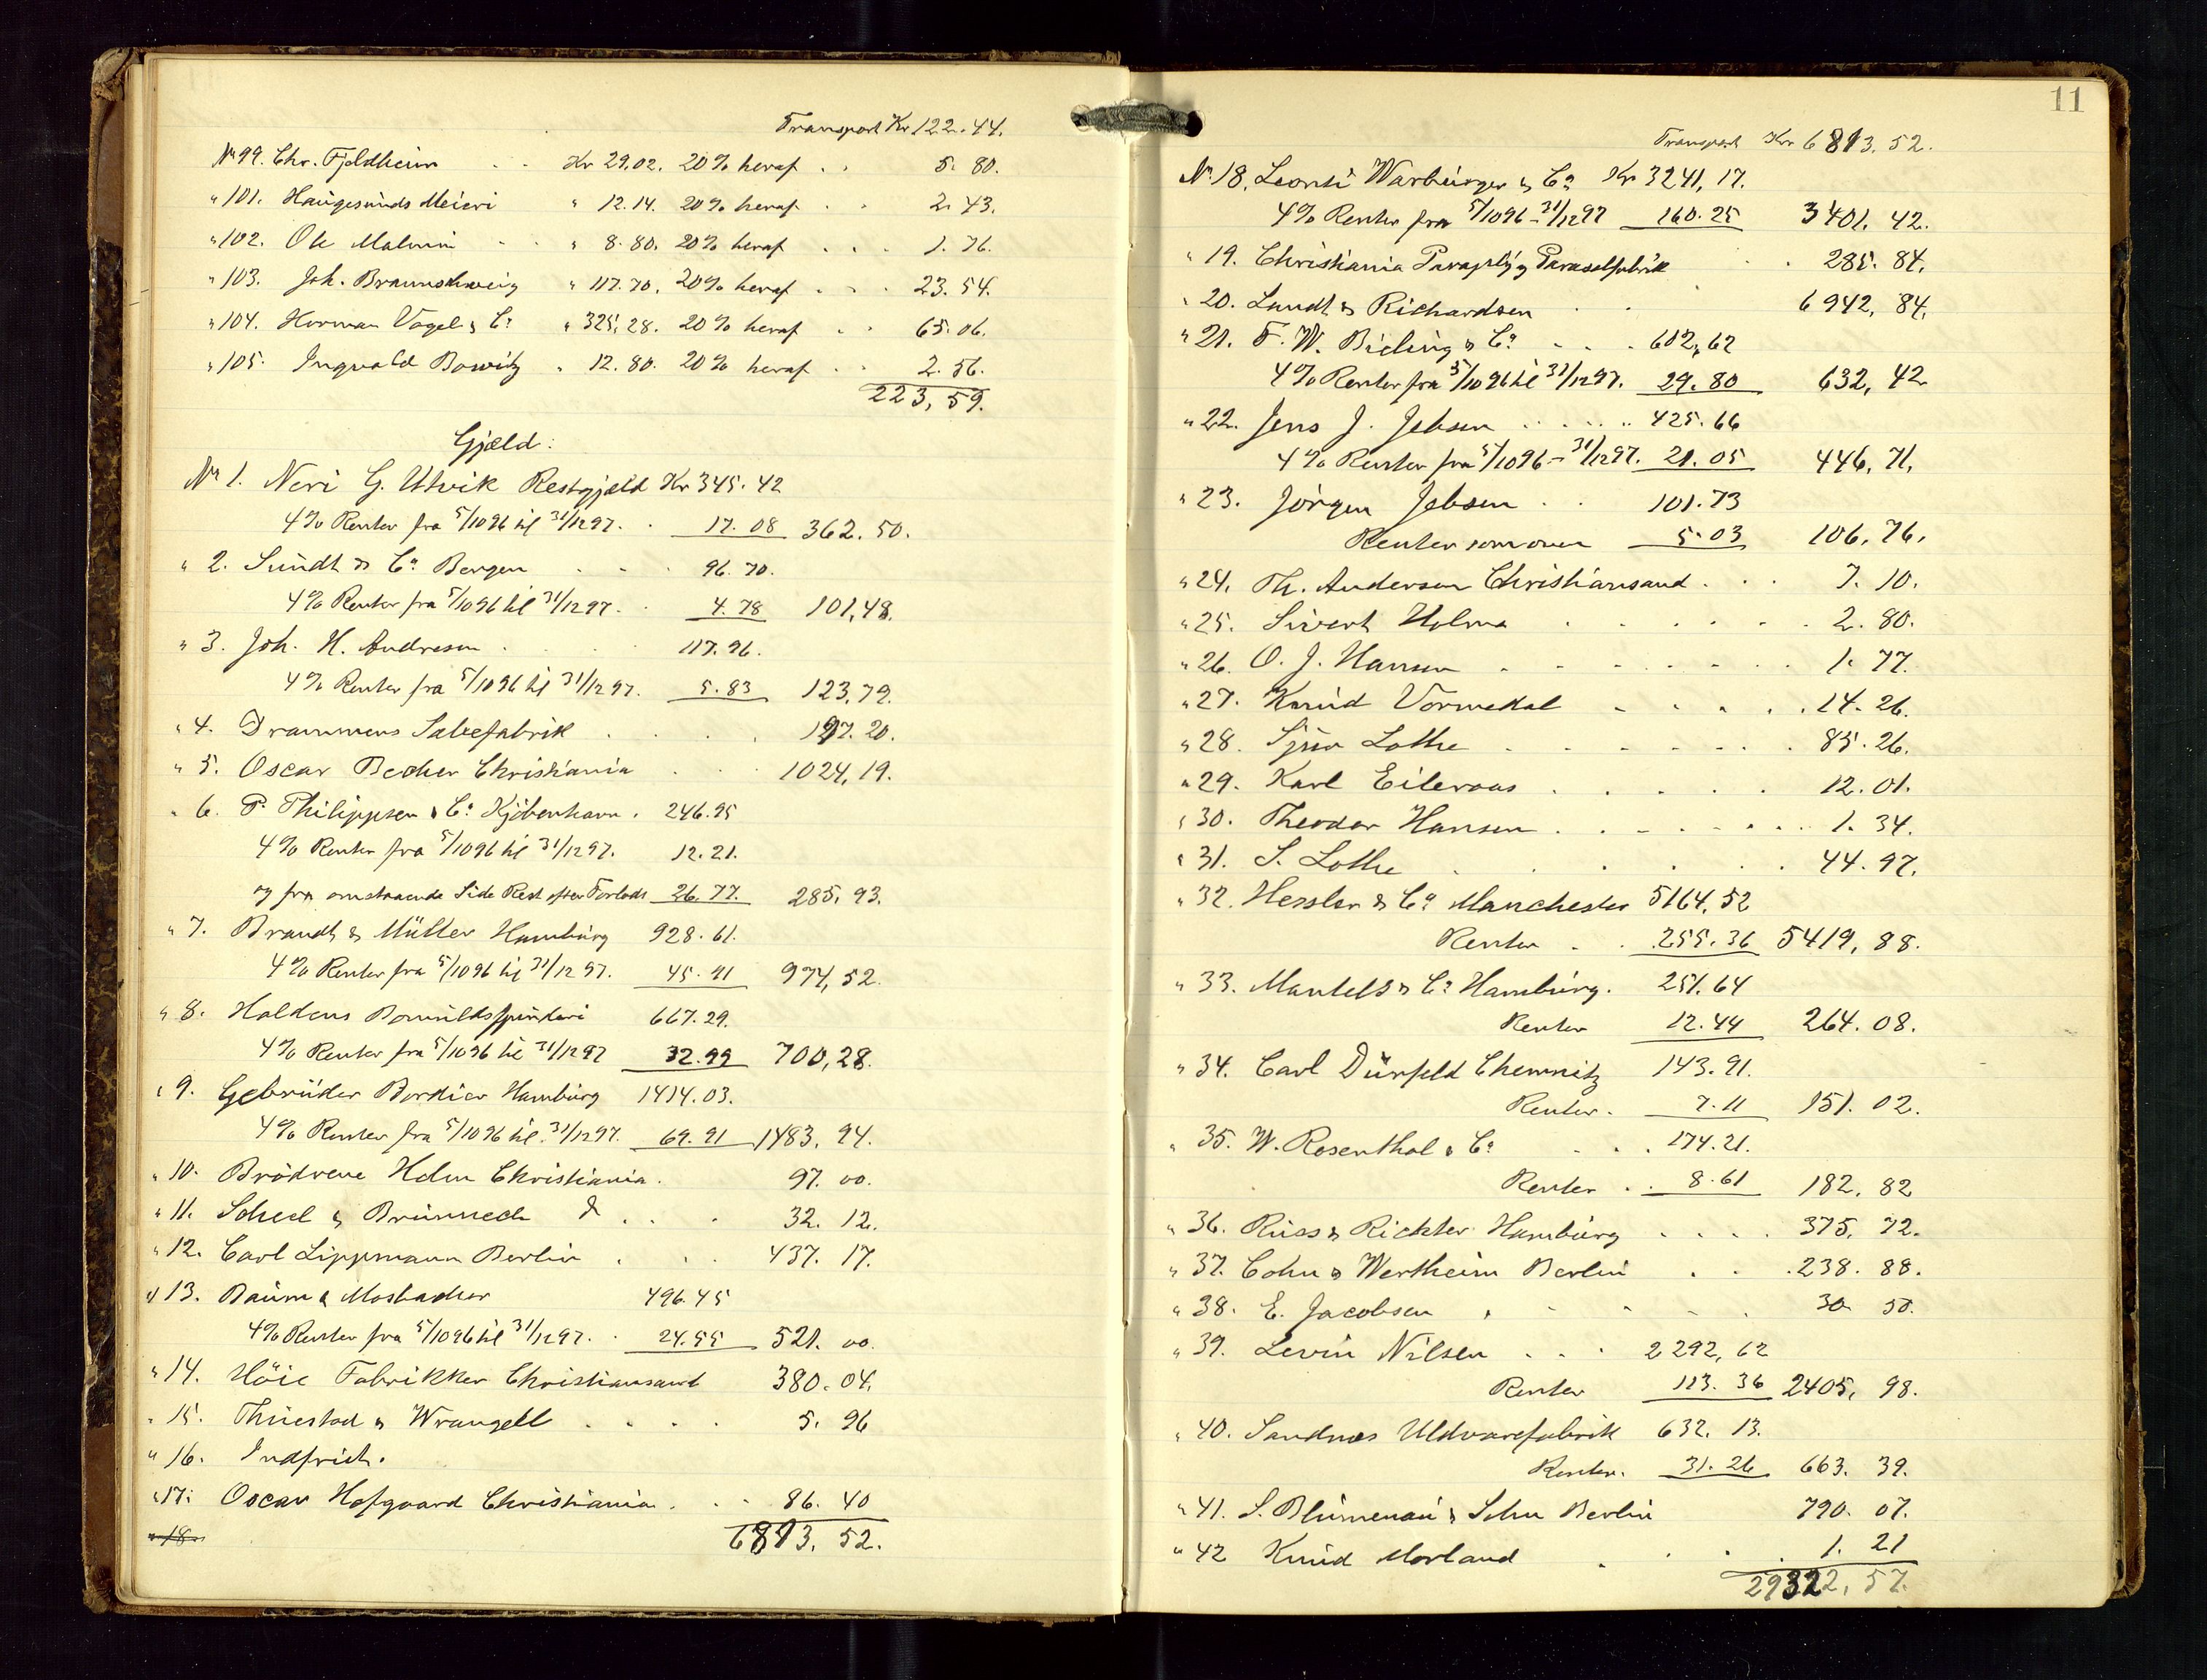 Transport Kr 122.44.
No 99. Chr. Fjeldheim . . Kr 29.02. 20% heraf . . 5. 80.
" 101. Haugesunds Meieri " 12.14. 20% heraf . . 2. 43.
" 102. Ole Malmin . . " 8.80. 20% heraf . . . 1. 76.
" 103. Joh. Braunschweig " 117.70. 20% heraf . . . 23. 54.
" 104. Herman Vogel & Co " 325,28. 20% heraf . . 65.06.
" 105. Ingvald Bowitz " 12.80. 20% heraf . . 2. 56.
223, 59.
Gjæld:
No 1. Neri G. Utvik Restgjæld Kr 345.42
4% Renter fra 5/10 96 til 31/12 97. . 17.08 362. 50.
" 2. Sundt & Co Bergen . . . 96.70.
4% Renter fra 5/10 96 til 31/12 97. . 4.78 101,48.
" 3. Joh. H. Andresen . . . . 117.96.
4% Renter fra 5/10 96 til 31/12 97. 5.83 123,79.
" 4. Drammens Salvefabrik . . . . 197.20.
" 5. Oscar Becher Christiania . . . 1024,19.
" 6. P. Philippsen & Co Kjöbenhavn . 246.95
4% Renter fra 5/10 96 til 31/12 97. 12.21.
og fra omstaaende Side Rest efter Forlods 26.77. 285, 93.
" 7. Brandt & Müller Hamburg 928.61.
4% Renter fra 5/10 96 til 31/12 97. 45.91 974, 52.
" 8. Haldens Bomuldsspinderi 667.29.
4% Renter fra 5/10 96 til 31/12 97 32.99 700,28.
" 9. Gebrüder Bordier Hamburg 1414.03.
4% Renter fra 5/10 96 til 31/12 97. 69.91 1483, 94.
" 10. Brödrene Holm Christiania. 97. 00.
" 11. Scheel & Brünnech Do . . . 32. 12.
" 12. Carl Lippmann Berlin . . . 437. 17.
" 13. Baum & Mosbacher 496.45
4% Renter fra 5/10 96 til 31/12 97. . 24.55 521. 00.
" 14. Höie Fabrikker Christiansand 380. 04.
" 15. Thuestad & Wrangell . . . . 5. 96
" 16. Indfriet.
" 17. Oscar Hofgaard Christiania . . . 86. 40
" 18
6813, 52.
11
Transport Kr 6813, 52.
No 18. Leonti Warburger & Co Kr 3241, 17.
4% Renter fra 5/10 96 - 31/12 97 160.25 3401, 42.
" 19. Christiania Paraply og Parasolfabrik . . 285. 84.
" 20. Lundt & Richardsen . . 6942, 84.
" 21. F. W. Bieling & Co . . . 602,62
4% Renter fra 5/10 96 til 31/12 97. 29.80 632, 42
" 22. Jens J. Jebsen . . . . . . 425.66
4% Renter fra 5/10 96 - 31/12 97. 21.05 446, 71.
" 23. Jörgen Jebsen . . 101.73
Renter som oven 5.03 106, 76.
" 24. Th. Andersen Christiansand . . . 7. 10.
" 25. Sivert Holma . . . . . . 2. 80.
" 26. O. J. Hansen . . . . . . . 1. 77.
" 27. Knud Vormedal . . . . . 14. 26.
" 28. Sjur Lothe . . . . . . . 85. 26.
" 29. Karl Eileraas . . . . . 12. 01.
" 30. Theodor Hansen . . . . . . . . 1. 34.
" 31. S. Lothe . . . . . . 44. 97.
" 32. Hessler & Co Manchester 5164, 52
Renter . . 255.36 5419, 88.
" 33. Mantels & Co Hamburg. 251.64
Renter 12.44 264. 08.
" 34. Carl Dürfeld Chemnitz 143.91.
Renter. 7.11 151. 02.
" 35. W. Rosenthal & Co . . . 174.21.
Renter . . 8.61 182, 82
" 36. Russ & Richter Hamburg . . . . 375, 72.
" 37. Cohn & Wertheim Berlin . . . 238. 88.
" 38. E. Jacobsen . . . . . 30 50.
" 39. Levin Nilsen . . . 2292, 62
Renter 113. 36 2405, 98.
" 40. Sandnes Uldvarefabrik 632. 13.
Renter. 31. 26 663. 39.
" 41. S. Blumenau & Sohn Berlin 790. 07.
" 42 Knud Morland . . . . 1. 21
29322, 57.